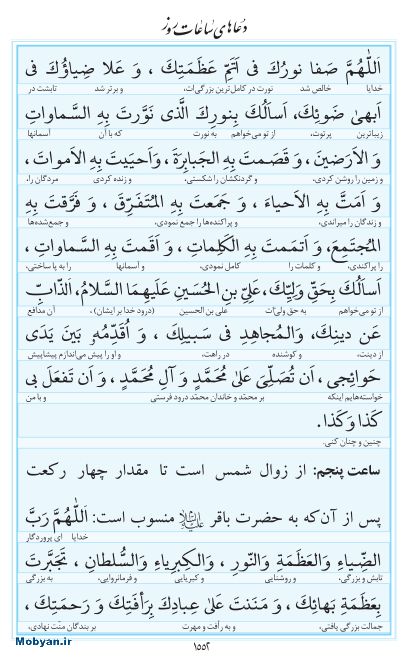 دعاهای ساعات روز
اَللّٰهُمَّ صَفا نورُكَ فى اَتَمِّ عَظَمَتِكَ ، وَ عَلا ضِياؤُكَ فى
خدایا خالص شد نورت در کامل‌ترین بزرگی‌ات، و برتر شد تابشت در
اَبهىٰ ضَوئِكَ، اَساَلُكَ بِنورِكَ الَّذى نَوَّرتَ بِهِ السَّماواتِ
زیباترین پرتوت، از تو می‌خواهم به نورت که با آن آسمانها
وَ الاَرَضينَ، وَ قَصَمتَ بِهِ الجَبابِرَةَ، وَاَحيَيتَ بِهِ الاَمواتَ ،
و زمین را روشن کردی، و گردنکشان را شکستی، و زنده کردی مردگان را،
وَ اَمَتَّ بِهِ الاَحياءَ ، وَ جَمَعتَ بِهِ المُتَفَرِّقَ ، وَ فَرَّقتَ بِهِ
و زندگان را میراندی، و پراکنده‌ها را جمع نمودی، و جمع‌شده‌ها
المُجتَمِعَ، وَ اَتمَمتَ بِهِ الكَلِماتِ ، وَ اَقَمتَ بِهِ السَّماواتِ ،
را پراکندی، و کلمات را کامل نمودی، و آسمانها را به پا ساختی،
اَساَلُكَ بِحَقِّ وَلِيِّكَ، عَلِىِّ بنِ الحُسَينِ عَلَيهِمَا السَّلامُ، اَلذّابِّ
از تو می‌خواهم به حق ولی‌ات علی بن الحسین (درود خدا بر ایشان)، آن مدافع
عَن دينِكَ، وَالمُجاهِدِ فى سَبيلِكَ ، وَ اُقَدِّمُهُ بَينَ يَدَى
از دینت، و کوشنده در راهت، و او را پیش می‌اندازم پیشاپیش
حَوائِجى ، اَن تُصَلِّىَ عَلىٰ مُحَمَّدٍ وَ آلِ مُحَمَّدٍ ، وَ اَن تَفعَلَ بى
خواسته‌هایم اینکه بر محمّد و خاندان محمّد درود فرستی و با من
كَذا وَكَذا.
چنین و چنان کنی.
ساعت پنجم: از زوال شمس است تا مقدار چهار رکعت
پس از آن‌که به حضرت باقر علیه‌السلام منسوب است: اَللّٰهُمَّ رَبَّ
خدایا ای پروردگار
الضِّياءِ وَالعَظَمَةِ وَالنّورِ ، وَالكِبرِياءِ وَالسُّلطانِ ، تَجَبَّرتَ
تابش و بزرگی، و روشنایی و کبریایی و فرمانروایی، به بزرگی
بِعَظَمَةِ بَهائِكَ ، وَ مَنَنتَ عَلىٰ عِبادِكَ بِرَأفَتِكَ وَ رَحمَتِكَ ،
جمالت بزرگی یافتی، و به رأفت و مهرت بر بندگان منت نهادی،
۱۵۵۲
Mobyan.ir